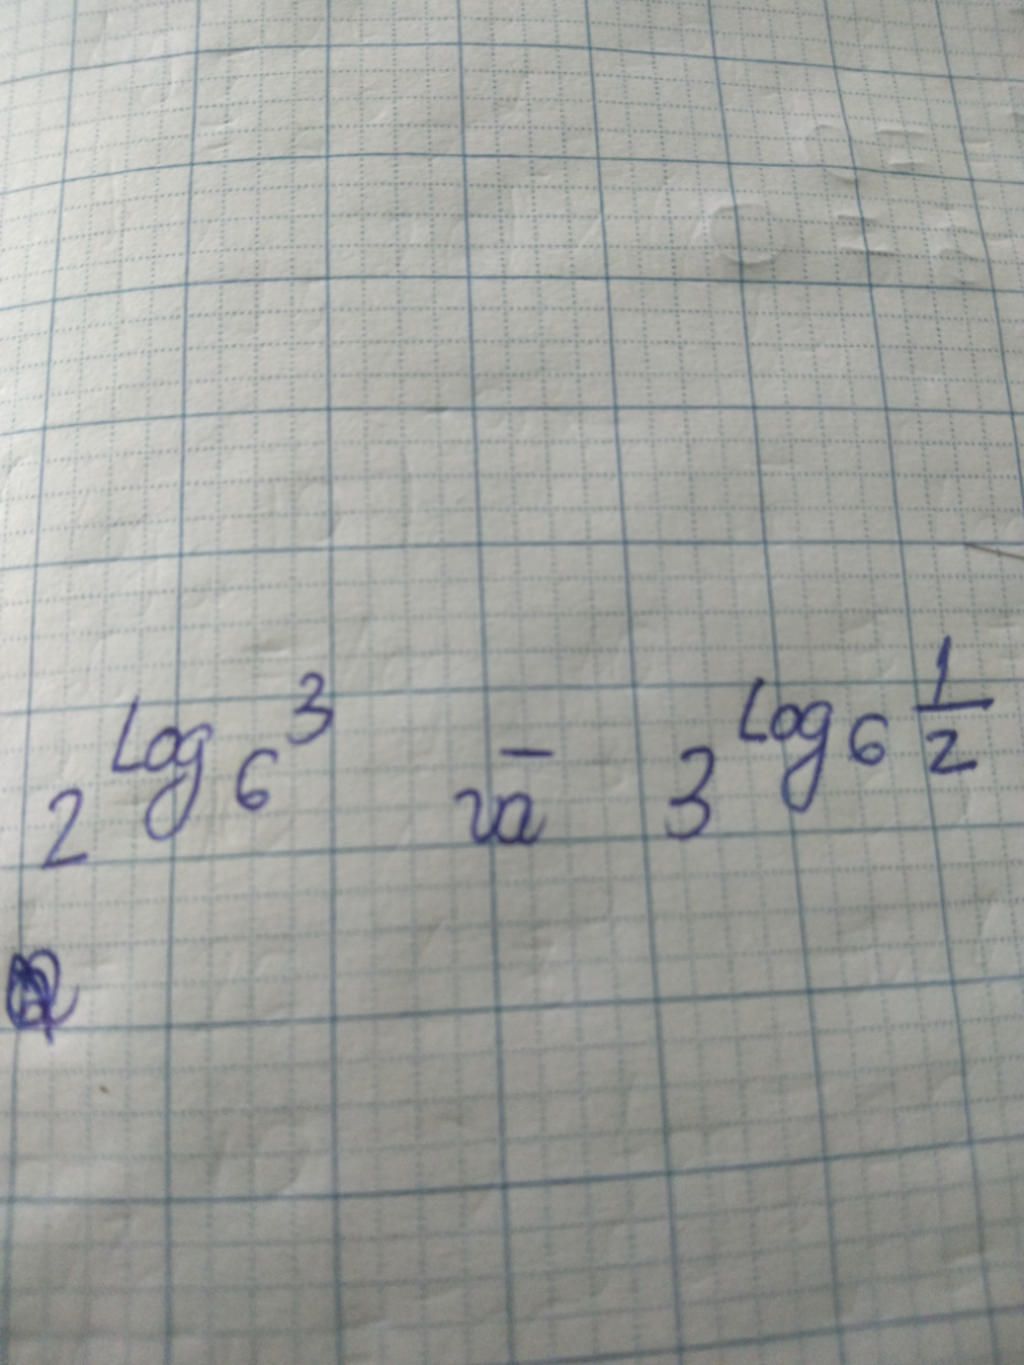 2^{Log_6 3} va 3^{Log_6 \frac{1}{2}}